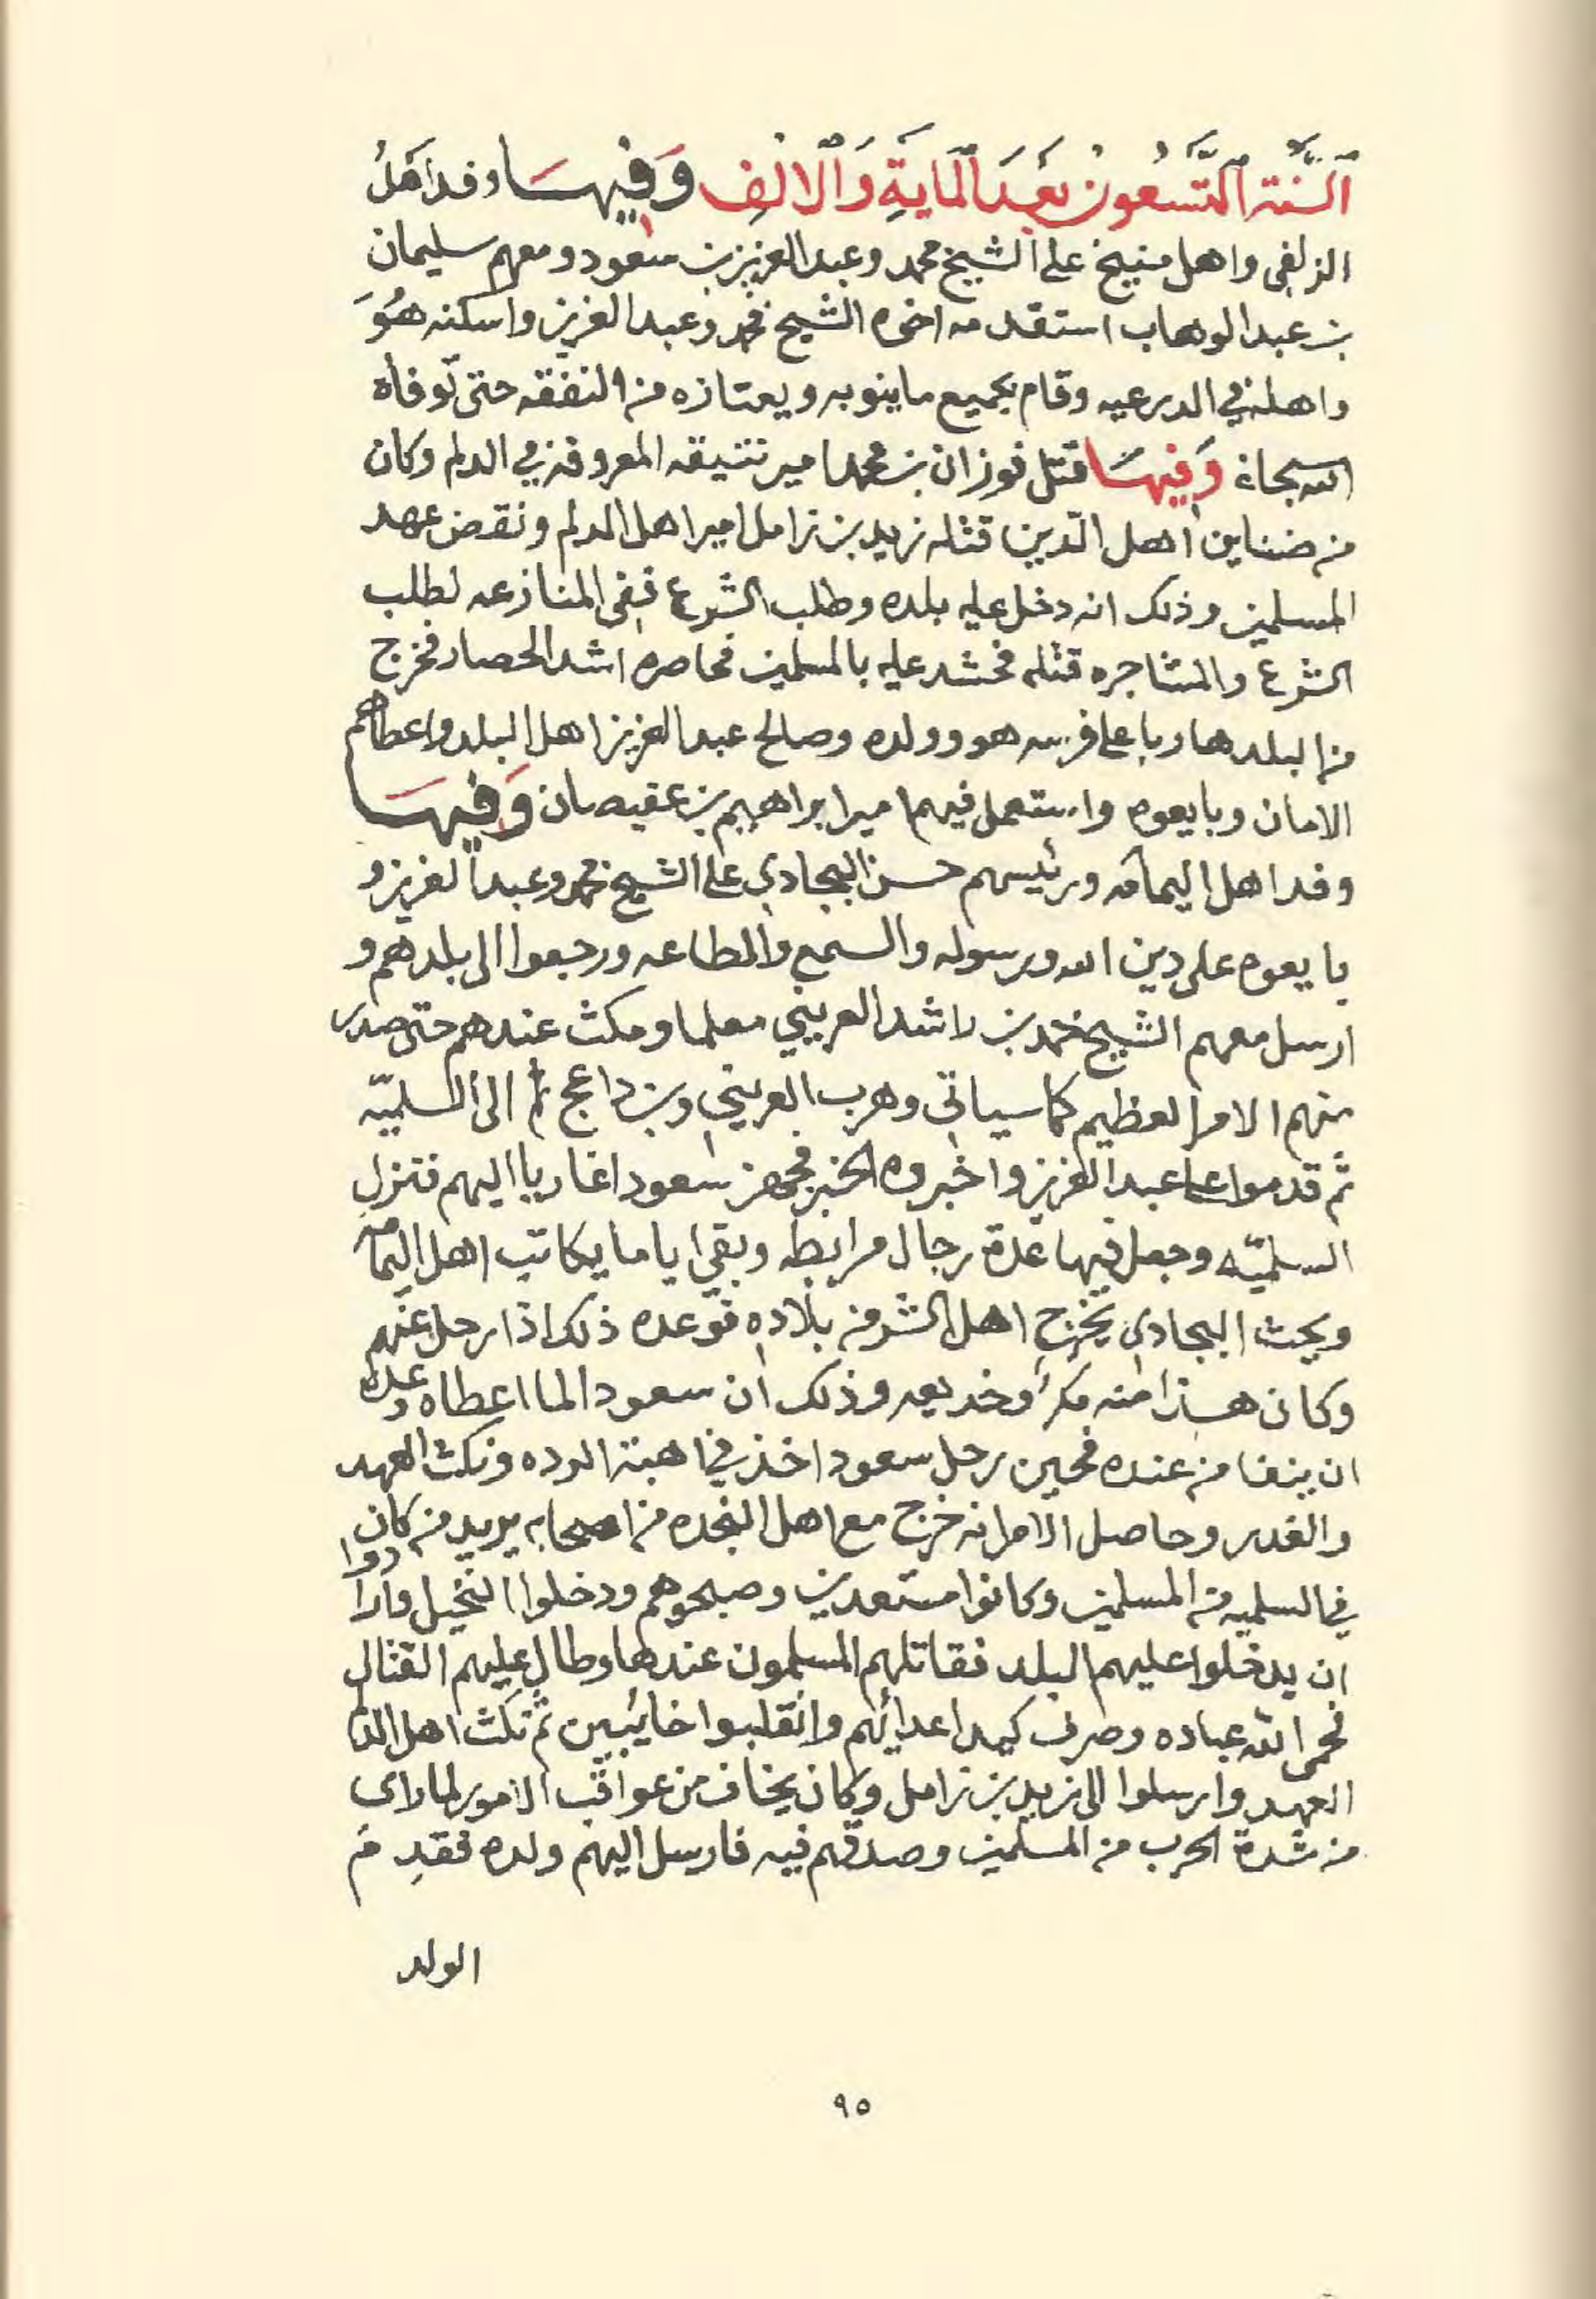 اَلسَّنَة التِّسْعُون بَعْدَ المَايَةِ وَالْالْفِ وَفِيهَا وفد اَهْلُ
الزلفى واهل منيخ على الشيخ محمد وعبدالعزيز بن سعود ومعهم سليمان
بن عبدالوهاب استقدمه اخوه الشيخ محمد وعبدالعزيز واسكنه هُوَ
واهله في الدرعيه وقام بجميع ماينوبه ويعتازه من النفقه حتى توفاه
الله سبحانه وَفِيهَا قتل فوزان بن محمد امير نتيقه المعروفه في الدلم وكان
من ضناين اهل الدّين قتله زيد بن زامل امير اهل الدلم ونقض عهد
المسلمين وذلك انه دخل عليه بلده وطلب الشرع ففى المنازعه لطلب
الشرع والمشاجره قتله فحشد عليه بالمسلمين فحاصره اشد الحصار فخرج
من البلد هاربا على فرسه هو وولده وصالح عبدالعزيز اهل البلد واعطاهم
الامان وبايعوه واستعمل فيهم امير ابراهيم بن عقيصان وَفِيهَا
وفد اهل اليمامه ورئيسهم حسن البجادي على الشيخ محمد وعبدالعزيز و
بايعوه على دين الله ورسوله والسمع والطاعه ورجعوا الى بلدهم و
ارسل معهم الشيخ حمد بن راشد العريني معلما ومكث عندهم حتى صدر
منهم الامر العظيم كما سياتي وهرب العريني وبن داعج ثم الى السلميّه
ثم قدموا على عبدالعزيز واخبروه الخبر فجهز سعود اغازيا اليهم فنزل
السلميّه وجعل فيها عدة رجال مرابطه وبقي اياما يكاتب اهل اليمامه
ويحث البجادي يخرج اهل الشر من بلاده فوعده ذلك اذا رحل عنهم
وكان هذا منه مكراً وخديعه وذلك ان سعود الما اعطاه وعده
ان ينفا من عنده فحين رحل سعود اخذ في اهبة الرده ونكث العهد
والغدر وحاصل الامر انه خرج مع اهل النجده من اصحابه يريد من كان
في السلميه من المسلمين وكانوا مستعدين وصبحوهم ودخلوا النخيل وارادوا
ان يدخلوا عليهم البلد فقاتلهم المسلمون عندها وطال عليهم القتال
فحمى الله عباده وصرف كيد اعدائهم وانقلبوا خائبين ثم نكث اهل الدلم
العهد وارسلوا الى زيد بن زامل وكان يخاف من عواقب الامور لما راى
من شدة الحرب من المسلمين وصدقهم فيه فارسل اليهم ولده فقدم
الولد
٩٥